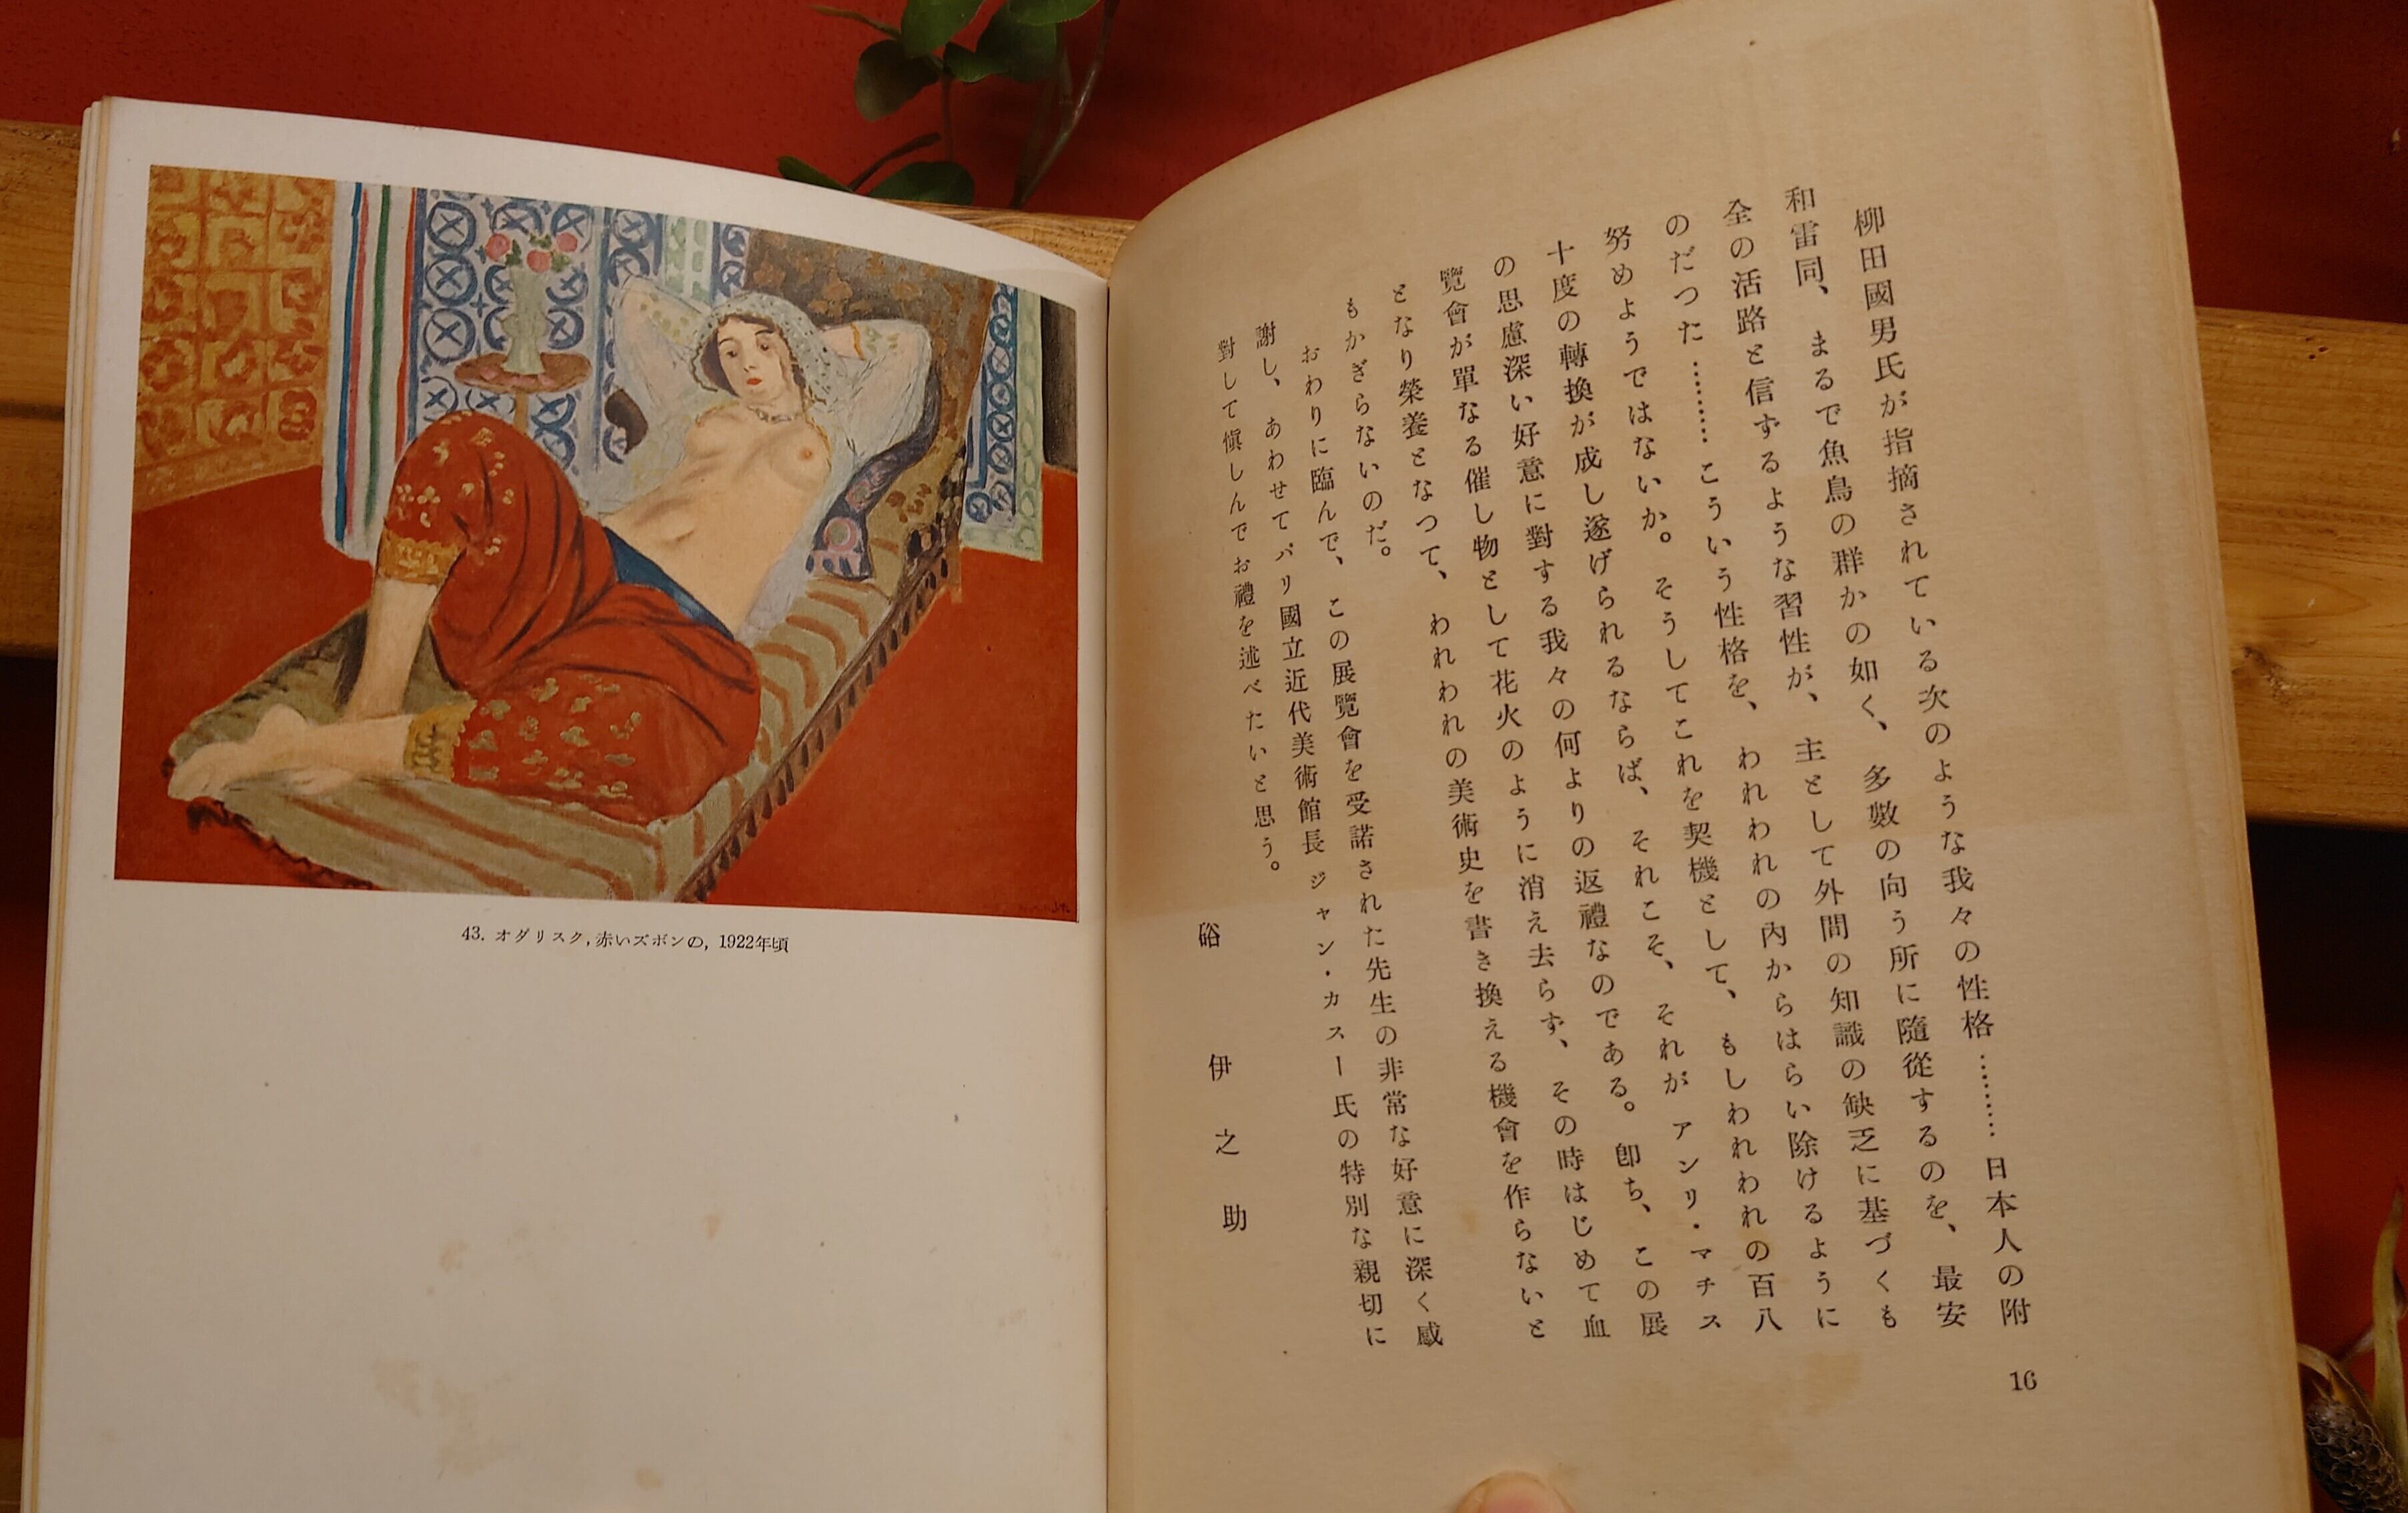 柳田國男氏が指摘されている次のような我々の性格………日本人の附
和雷同、まるで魚鳥の群かの如く、多數の向う所に隨從するのを、最安
全の活路と信ずるような習性が、主として外間の知識の缺乏に基づくも
のだつた………こういう性格を、われわれの內からはらい除けるように
努めようではないか。そうしてこれを契機として、もしわれわれの百八
十度の轉換が成し遂げられるならば、それこそ、それが アンリ・マチス
の思慮深い好意に對する我々の何よりの返禮なのである。卽ち、この展
覽會が單なる催し物として花火のように消え去らず、その時はじめて血
となり榮養となつて、われわれの美術史を書き換える機會を作らないと
もかぎらないのだ。
おわりに臨んで、この展覽會を受諾された先生の非常な好意に深く感
謝し、あわせてパリ國立近代美術館長 ジャン・カスー氏の特別な親切に
對して愼しんでお禮を述べたいと思う。
硲 伊之助
16
43. オダリスク, 赤いズボンの, 1922年頃